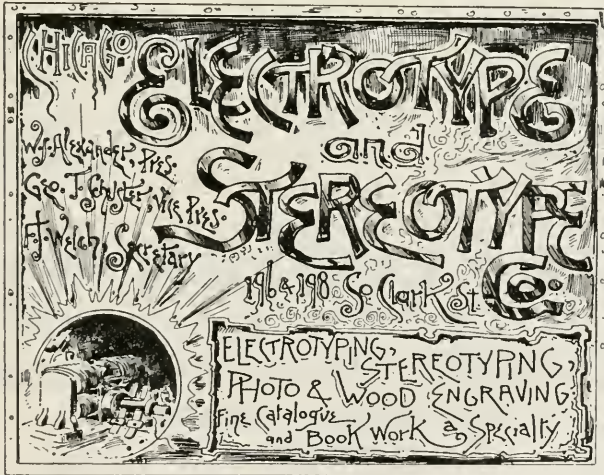 CHICAGO
ELECTROTYPE
and
STEREOTYPE
Co.
W.J. Alexander, Pres.
Geo. J. Schuster, Vice Pres.
F.J. Welch, Secretary
196 & 198 So. Clark St.
ELECTROTYPING,
STEREOTYPING,
PHOTO & WOOD ENGRAVING
Fine Catalogue
and Book Work a Specialty